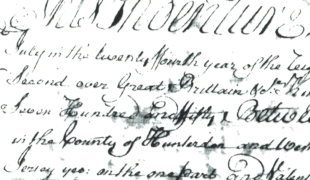 This Indenture
July in the twenty fourth year of the Reig
Second over Great Brittain &c
Seven Hundred and fifty & Betwe
in the County of Hunterdon and Wes
Jersey yeo: on the one part And Valent